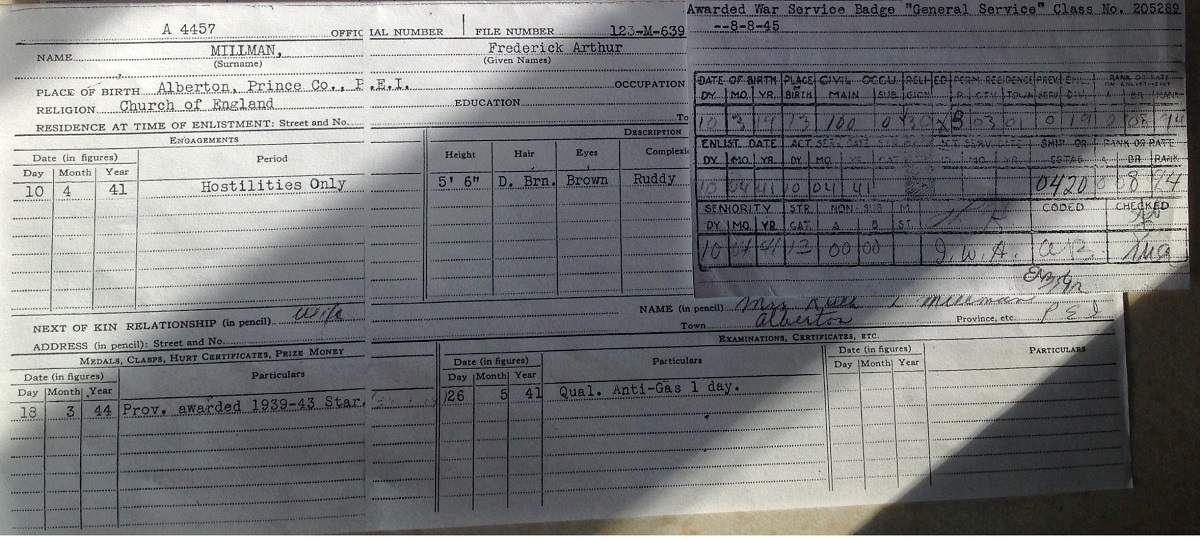 A 4457 OFFICIAL NUMBER FILE NUMBER 123-M-639
NAME MILLMAN, Frederick Arthur
(Surname) (Given Names)
PLACE OF BIRTH Alberton, Prince Co., P.E.I. OCCUPATION
RELIGION Church of England EDUCATION
RESIDENCE AT TIME OF ENLISTMENT: Street and No. To
ENGAGEMENTS DESCRIPTION
Date (in figures) Period Height Hair Eyes Complexi
Day Month Year
10 4 41 Hostilities Only 5' 6" D. Brn. Brown Ruddy
NEXT OF KIN RELATIONSHIP (in pencil) wife NAME (in pencil) Mrs Millman
ADDRESS (in pencil): Street and No. Town Alberton Province, etc. P E I
MEDALS, CLASPS, HURT CERTIFICATES, PRIZE MONEY EXAMINATIONS, CERTIFICATES, ETC.
Date (in figures) Particulars Date (in figures) Particulars Date (in figures) PARTICULARS
Day Month Year Day Month Year Day Month Year
18 3 44 Prov. awarded 1939-43 Star. 26 5 41 Qual. Anti-Gas 1 day.
Awarded War Service Badge "General Service" Class No. 205289
--8-8-45
DATE OF BIRTH PLACE CIVIL OCCU. RELI PERM. RESIDENCE PREV. RANK OR RATE
DY. MO. YR. BIRTH MAIN SUB GION CITY TOWN SERV. BR. RANK
10 3 19 13 100 0 03 01 0 19 94
ENLIST. DATE ACT. SERV. DATE ACT. SERV. DATE SHIP OR RANK OR RATE
DY. MO. YR. DY. MO. YR. CAT. MO. YR. ESTAB. BR. RANK
10 04 41 10 04 41 0420 0 8 94
SENIORITY STR. NON-SUB M. CODED CHECKED
DY. MO. YR. CAT. A B ST.
10 04 41 13 00 00 J.W.A.